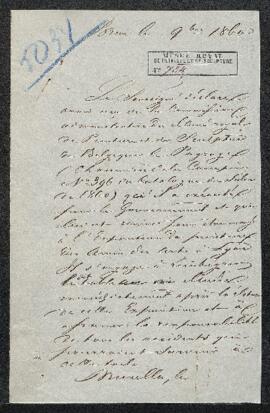 5031
le 9bre 1860
MUSEE ROYAL
DE PEINTURE ET DE SCULPTURE
Le Soussigné déclare
avoir reçu de la Commission
administrative du Musée royal
de Peinture et de Sculpture
de Belgique le Paysage
de la Campine
No 396 du Catalogue du Salon
de 1860) qui
par le Gouvernement et qui
pour
à l'Exposition de peinture
des Amis des Arts à Lyon
Il s'engage à réintégrer
le tableau au Musée
immédiatement après la clôture
de cette Exposition et à
assumer la responsabilité
de tous les accidents qui
pourraient survenir à
cette toile
Bruxelles, le